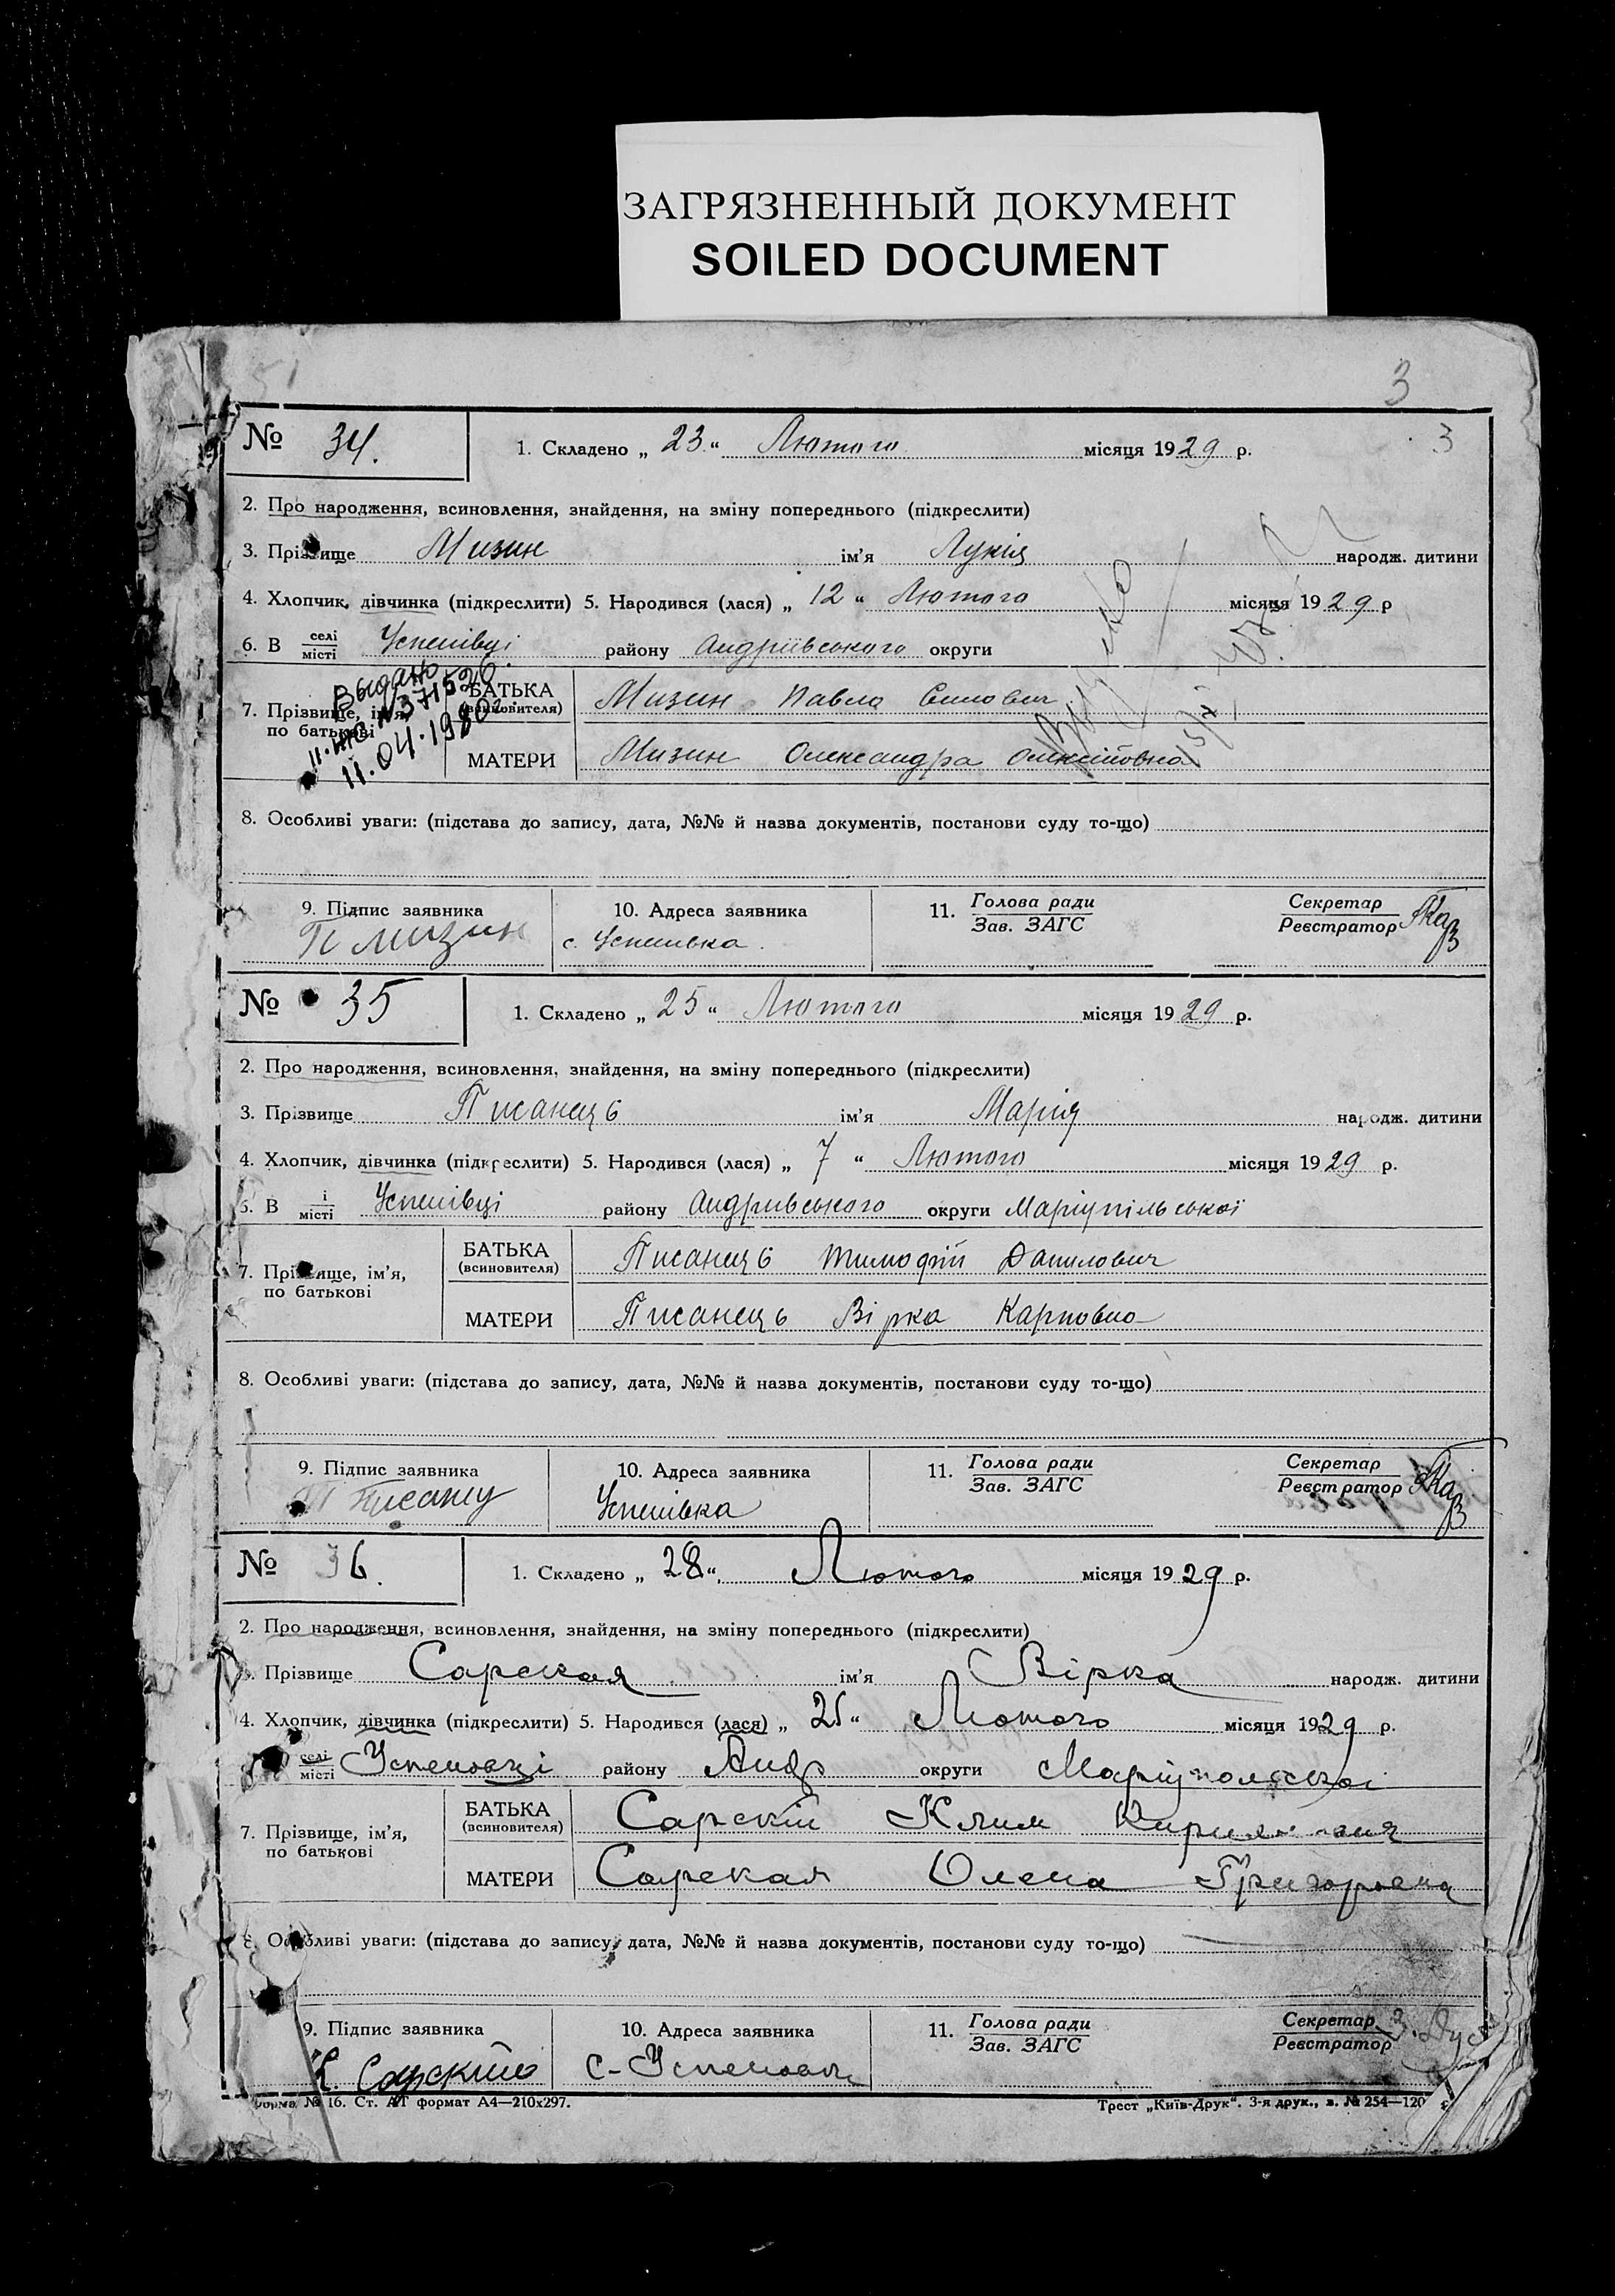 ЗАГРЯЗНЕННЫЙ ДОКУМЕНТ
SOILED DOCUMENT
3
3
№ 34. 1. Складено „ 23 “ Лютого місяця 1929 р.
2. Про народження, всиновлення, знайдення, на зміну попереднього (підкреслити)
3. Прізвище Мизин ім’я Лукія народж. дитини
4. Хлопчик, дівчинка (підкреслити) 5. Народився (лася) „ 12 “ Лютого місяця 1929 р
6. В селі/місті Успенівці району Андріївського округи
Выдано
11.04.1980
7. Прізвище, ім’я, по батькові
БАТЬКА (всиновителя) Мизин Павло
МАТЕРИ Мизин Олександра
8. Особливі уваги: (підстава до запису, дата, №№ й назва документів, постанови суду то-що)
9. Підпис заявника 10. Адреса заявника 11. Голова ради Секретар
Зав. ЗАГС Реєстратор
П Мизин с. Успенівка
№ 35 1. Складено „ 25 “ Лютого місяця 1929 р.
2. Про народження, всиновлення, знайдення, на зміну попереднього (підкреслити)
3. Прізвище Писанець ім’я Марія народж. дитини
4. Хлопчик, дівчинка (підкреслити) 5. Народився (лася) „ 7 “ Лютого місяця 1929 р.
6. В і/місті Успенівці району Андрівського округи Маріупільської
7. Прізвище, ім’я, по батькові
БАТЬКА (всиновителя) Писанець Тимофій Данилович
МАТЕРИ Писанець Вірка Карповна
8. Особливі уваги: (підстава до запису, дата, №№ й назва документів, постанови суду то-що)
9. Підпис заявника 10. Адреса заявника 11. Голова ради Секретар
Зав. ЗАГС Реєстратор
Успенівка
№ 36. 1. Складено „ 28 “ Лютого місяця 1929 р.
2. Про народження, всиновлення, знайдення, на зміну попереднього (підкреслити)
3. Прізвище Сарская ім’я Вірка народж. дитини
4. Хлопчик, дівчинка (підкреслити) 5. Народився (лася) „ 25 “ Лютого місяця 1929 р.
селі/місті Успеновці району Андр округи Маріупольскоі
7. Прізвище, ім’я, по батькові
БАТЬКА (всиновителя) Сарскій Клим
МАТЕРИ Сарская Олена Григорьевна
8. Особливі уваги: (підстава до запису, дата, №№ й назва документів, постанови суду то-що)
9. Підпис заявника 10. Адреса заявника 11. Голова ради Секретар
Зав. ЗАГС Реєстратор
К. Сарский
форма № 16. Ст. АТ формат А4—210х297. Трест „Київ-Друк“. 3-я друк., з. № 254—120